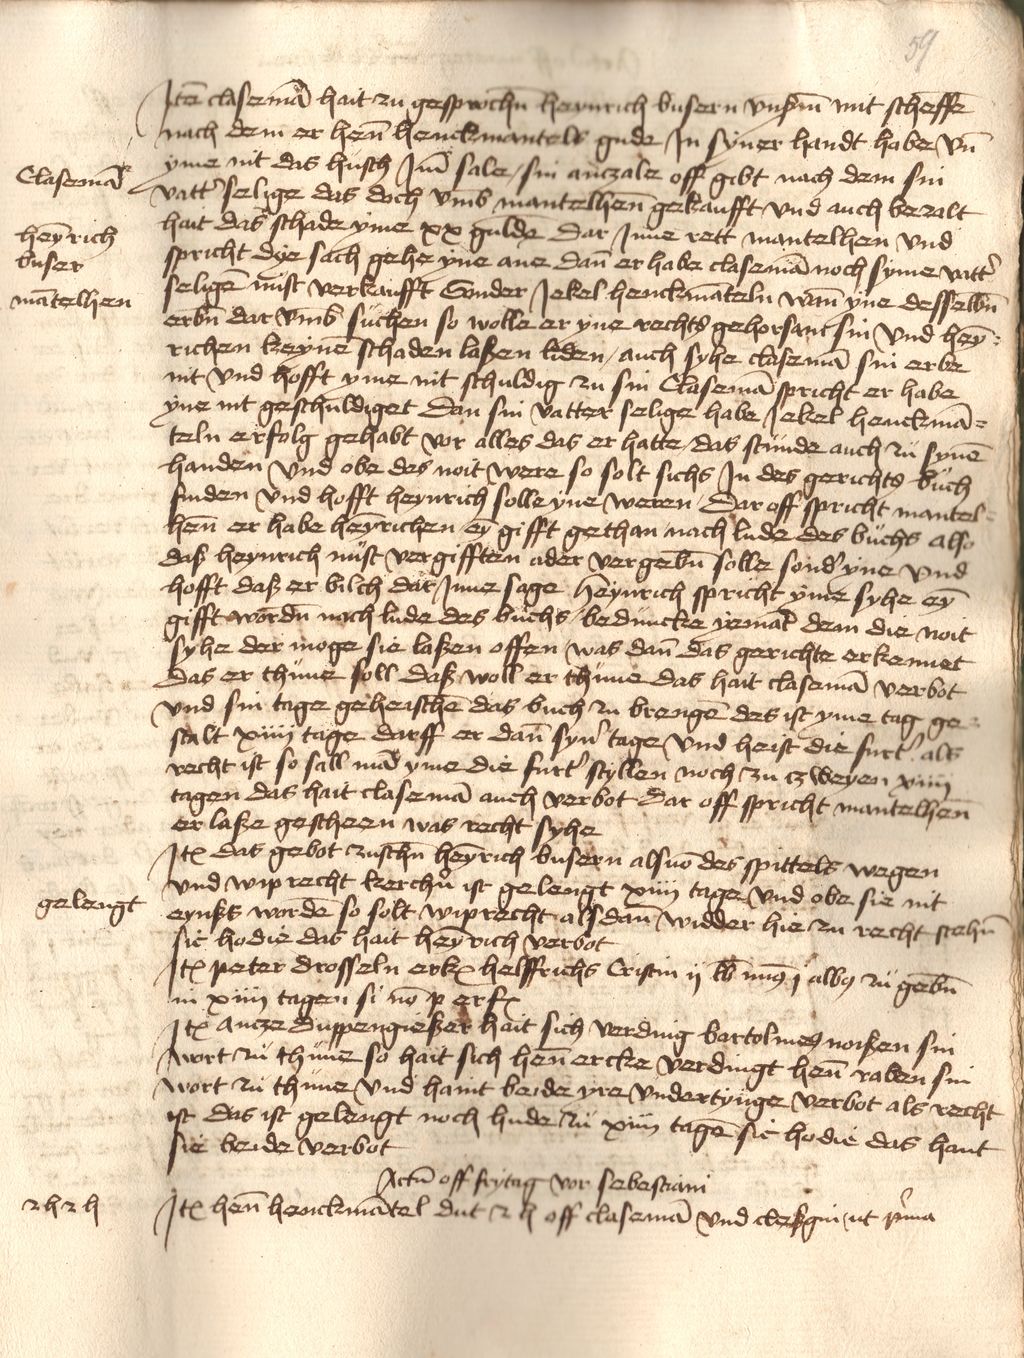 59
Itē clasemā hait zu gesprochn̄ heynrich busern vnßm̄ mit scheffē
nach dem er hen̄ henckmantels gude In syner handt habe vn̄
Clasemā
yme nit das husch Im̄ sale / sin anczale off gibt nach dem sin
vatt' selige das doch vmb mantelhen̄ gekaufft vnd auch bezalt
heȳrich
buser
hait das schade yme xx gulde Dar Inne rett mantelhen vnd
spricht dye sach gehe yne ane dan̄ er habe clasemā noch syme vatt'
mātelhen
seligē nust verkaufft Sonder Jekel henckmāteln wan̄ yne desselbn̄
erbn̄ dar vmb suchen so wolle er yne rechts gehorsam sin vnd hey=
richen keynē schaden laßen liden / auch syhe clasemā sin erbe
nit vnd hofft yme nit schuldig zu sin Clasemā spricht er habe
yne nit geschuldiget Dan sin vatter selige habe Jekel henckmā=
teln erfolg gehabt vor alles das er hatte / das stunde auch zu synē
handen vnd obe des noit were so solt sichs In des gerichts buch
finden vnd hofft heynrich solle yne weren / Dar off spricht mantel=
hen̄ er habe heȳrichen eȳ gifft gethan nach lude des buchs also
daß heynrich nust vergifften ader vergebn̄ solle sond' yne vnd
hofft daß er bilch dar Inne sage Heynrich spricht yme syhe eȳ
gifft wordn̄ nach lude des buchs / beduncke yemāt dem die noit
syhe der moge sie laßen offen / was dan̄ das gerichte erkennet
das er thune soll daß woll er thune das hait clasemā verbot
vnd sin tage geheischē das buch zu brengē des ist yme tag ge=
stalt xiiii tage darff er dan̄ syn' tage vnd heist die furt' als
recht ist so sall mā yme die furt' styllen noch zu czweyen xiiii
tagen das hait clasemā auch verbot Dar off spricht mantelhen̄
er laße gescheen was recht syhe
Itꝫ das gebot zuschn̄ heȳrich busern als vō des spittels wegen
gelengt
vnd wiprecht kerchn̄ ist gelengt xiiii tage vnd obe sie nit
eynßs wordē so solt wiprecht als dan̄ widder hie zu recht stehn̄
sic hodie das hait heȳrich verbot
Itꝫ peter drosseln erkꝫ helffrichs Cristin ij lb mīꝯ j albꝯ zu gebn̄
in xiiii tagen si nō p erfꝫ
Itꝫ Ancze duppengießer hait sich verding bartolmeꝯ noißen sin
wort zu thune so hait sich hen̄ ercke verdingt hen̄ raben sin
wort zu thune vnd haint beide yre vndertynge verbot als recht
ist das ist gelengt noch hude zu xiiii tagē sic hodie das haint
sie beide verbot
Actū off frytag vor sebestiani
2 h 2 h
Itꝫ hen̄ henckmātel dut 2 h off clasemā vnd cleßgin / ut p'ma